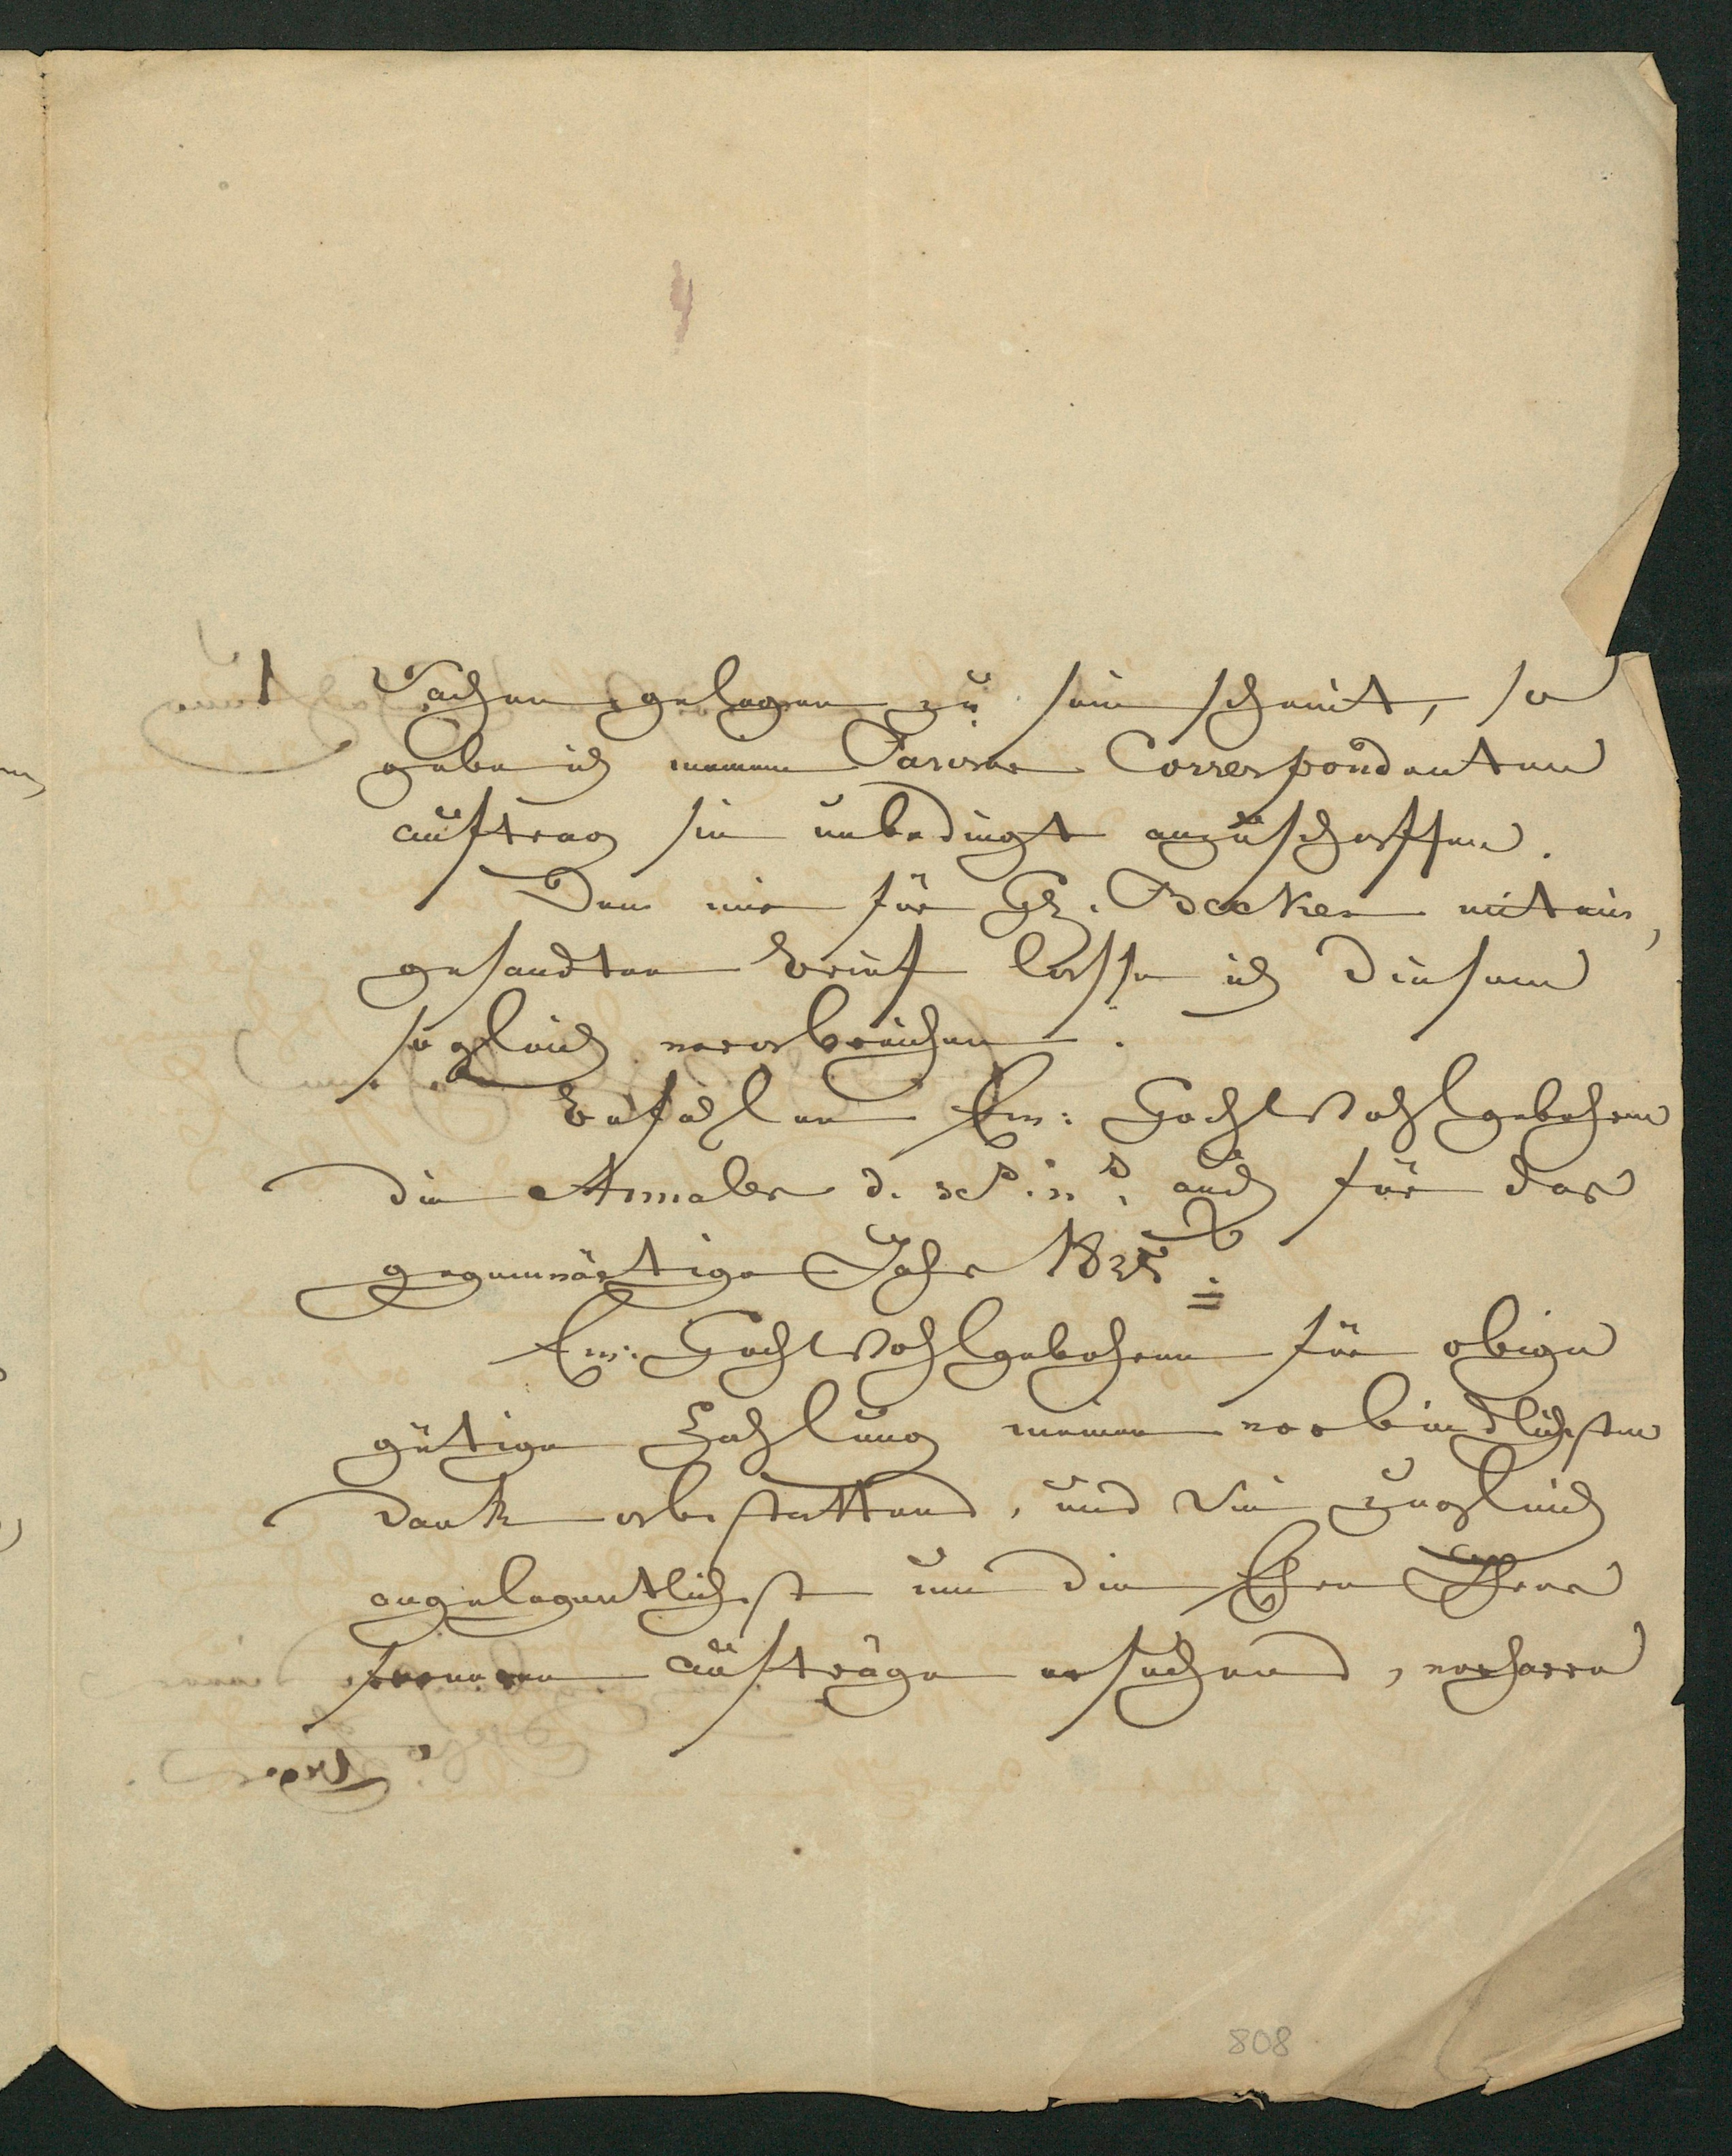 Sachen gelegen zu sein scheint, so
gebe ich meinem Pariser Correspondenten
auftrag sie unbedingt anzuschaffen.
Den mir für H. Becker mit ein,
gesandten Brief lasse ich diesem
sogleich verabreichen.
Befehlen Ew: HochWohlgebohren
die Annales d. sc. n. auch für das
gegenwärtige Jahr 1835
Ew: HochWohlgebohren für obige
gütige Zahlung meinen verbindlichsten
Dank abstattend, und Sie zugleich
angelegentlichst um die Ehre Ihrer
ferneren aufträge ersuchend, verharre
808